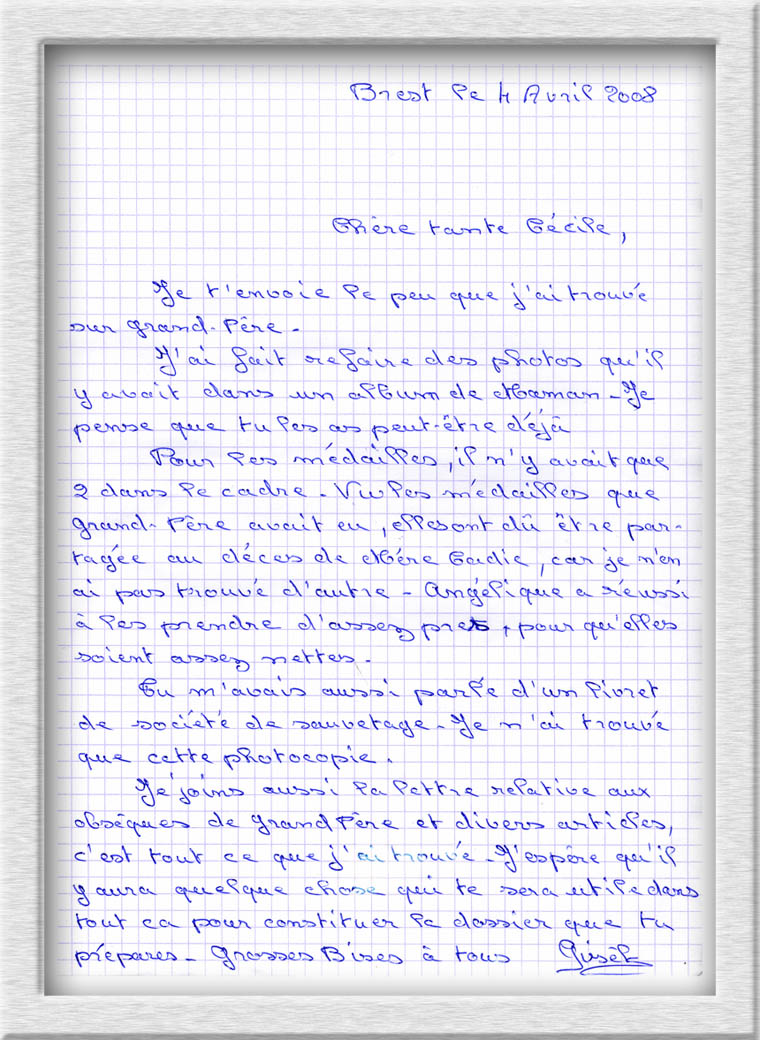 Brest le 4 Avril 2008
Chère tante Cécile,
Je t'envoie le peu que j'ai trouvé
sur grand-Père.
J'ai fait refaire des photos qu'il
y avait dans un album de Maman - Je
pense que tu les as peut-être déjà
Pour les médailles, il n'y avait que
2 dans le cadre - Vu les médailles que
grand-Père avait eu, elles ont dû être par-
tagée au décès de Mère Cadie, car je n'en
ai pas trouvé d'autre - Angélique a réussi
à les prendre d'assez près, pour qu'elles
soient assez nettes.
Tu m'avais aussi parlé d'un livret
de société de sauvetage - Je n'ai trouvé
que cette photocopie.
Je joins aussi la lettre relative aux
obsèques de grand Père et divers articles,
c'est tout ce que j'ai trouvé - J'espère qu'il
y aura quelque chose qui te sera utile dans
tout ca pour constituer le dossier que tu
prépares - Grosses Bises à tous